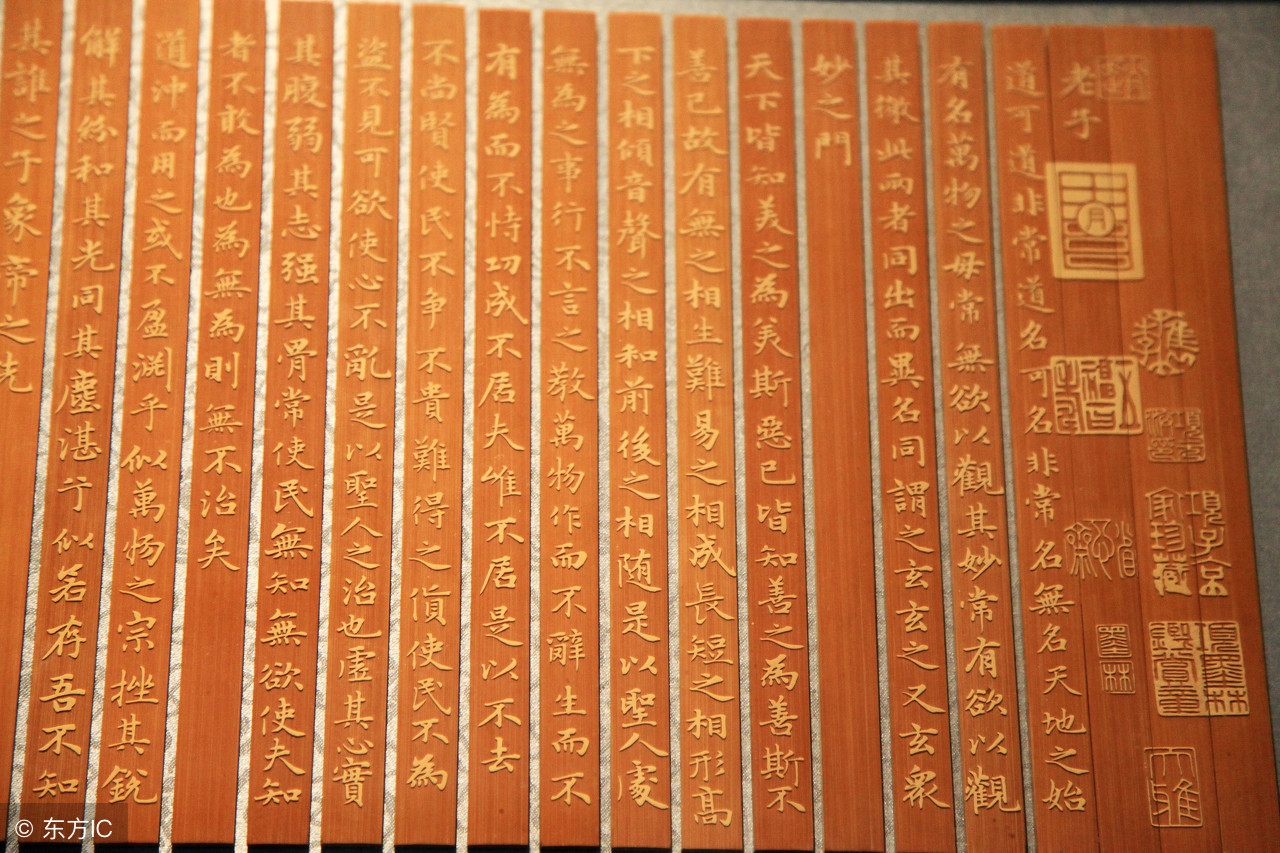 老子
道可道非常道名可名非常名無名天地之始
有名萬物之母常無欲以觀其妙常有欲以觀
其徼此兩者同出而異名同謂之玄玄之又玄衆
妙之門
天下皆知美之為美斯惡已皆知善之為善斯不
善已故有無之相生難易之相成長短之相形高
下之相傾音聲之相和前後之相随是以聖人處
無為之事行不言之教萬物作而不辭生而不
有為而不恃功成不居夫唯不居是以不去
不尚賢使民不争不貴難得之貨使民不為
盜不見可欲使心不亂是以聖人之治也虛其心實
其腹弱其志强其骨常使民無知無欲使夫知
者不敢為也為無為則無不治矣
道沖而用之或不盈淵乎似萬物之宗挫其銳
解其紛和其光同其塵湛兮似若存吾不知
其誰之子象帝之先
項子京
家珍藏
項墨林
鑑賞章
墨林
© 东方IC